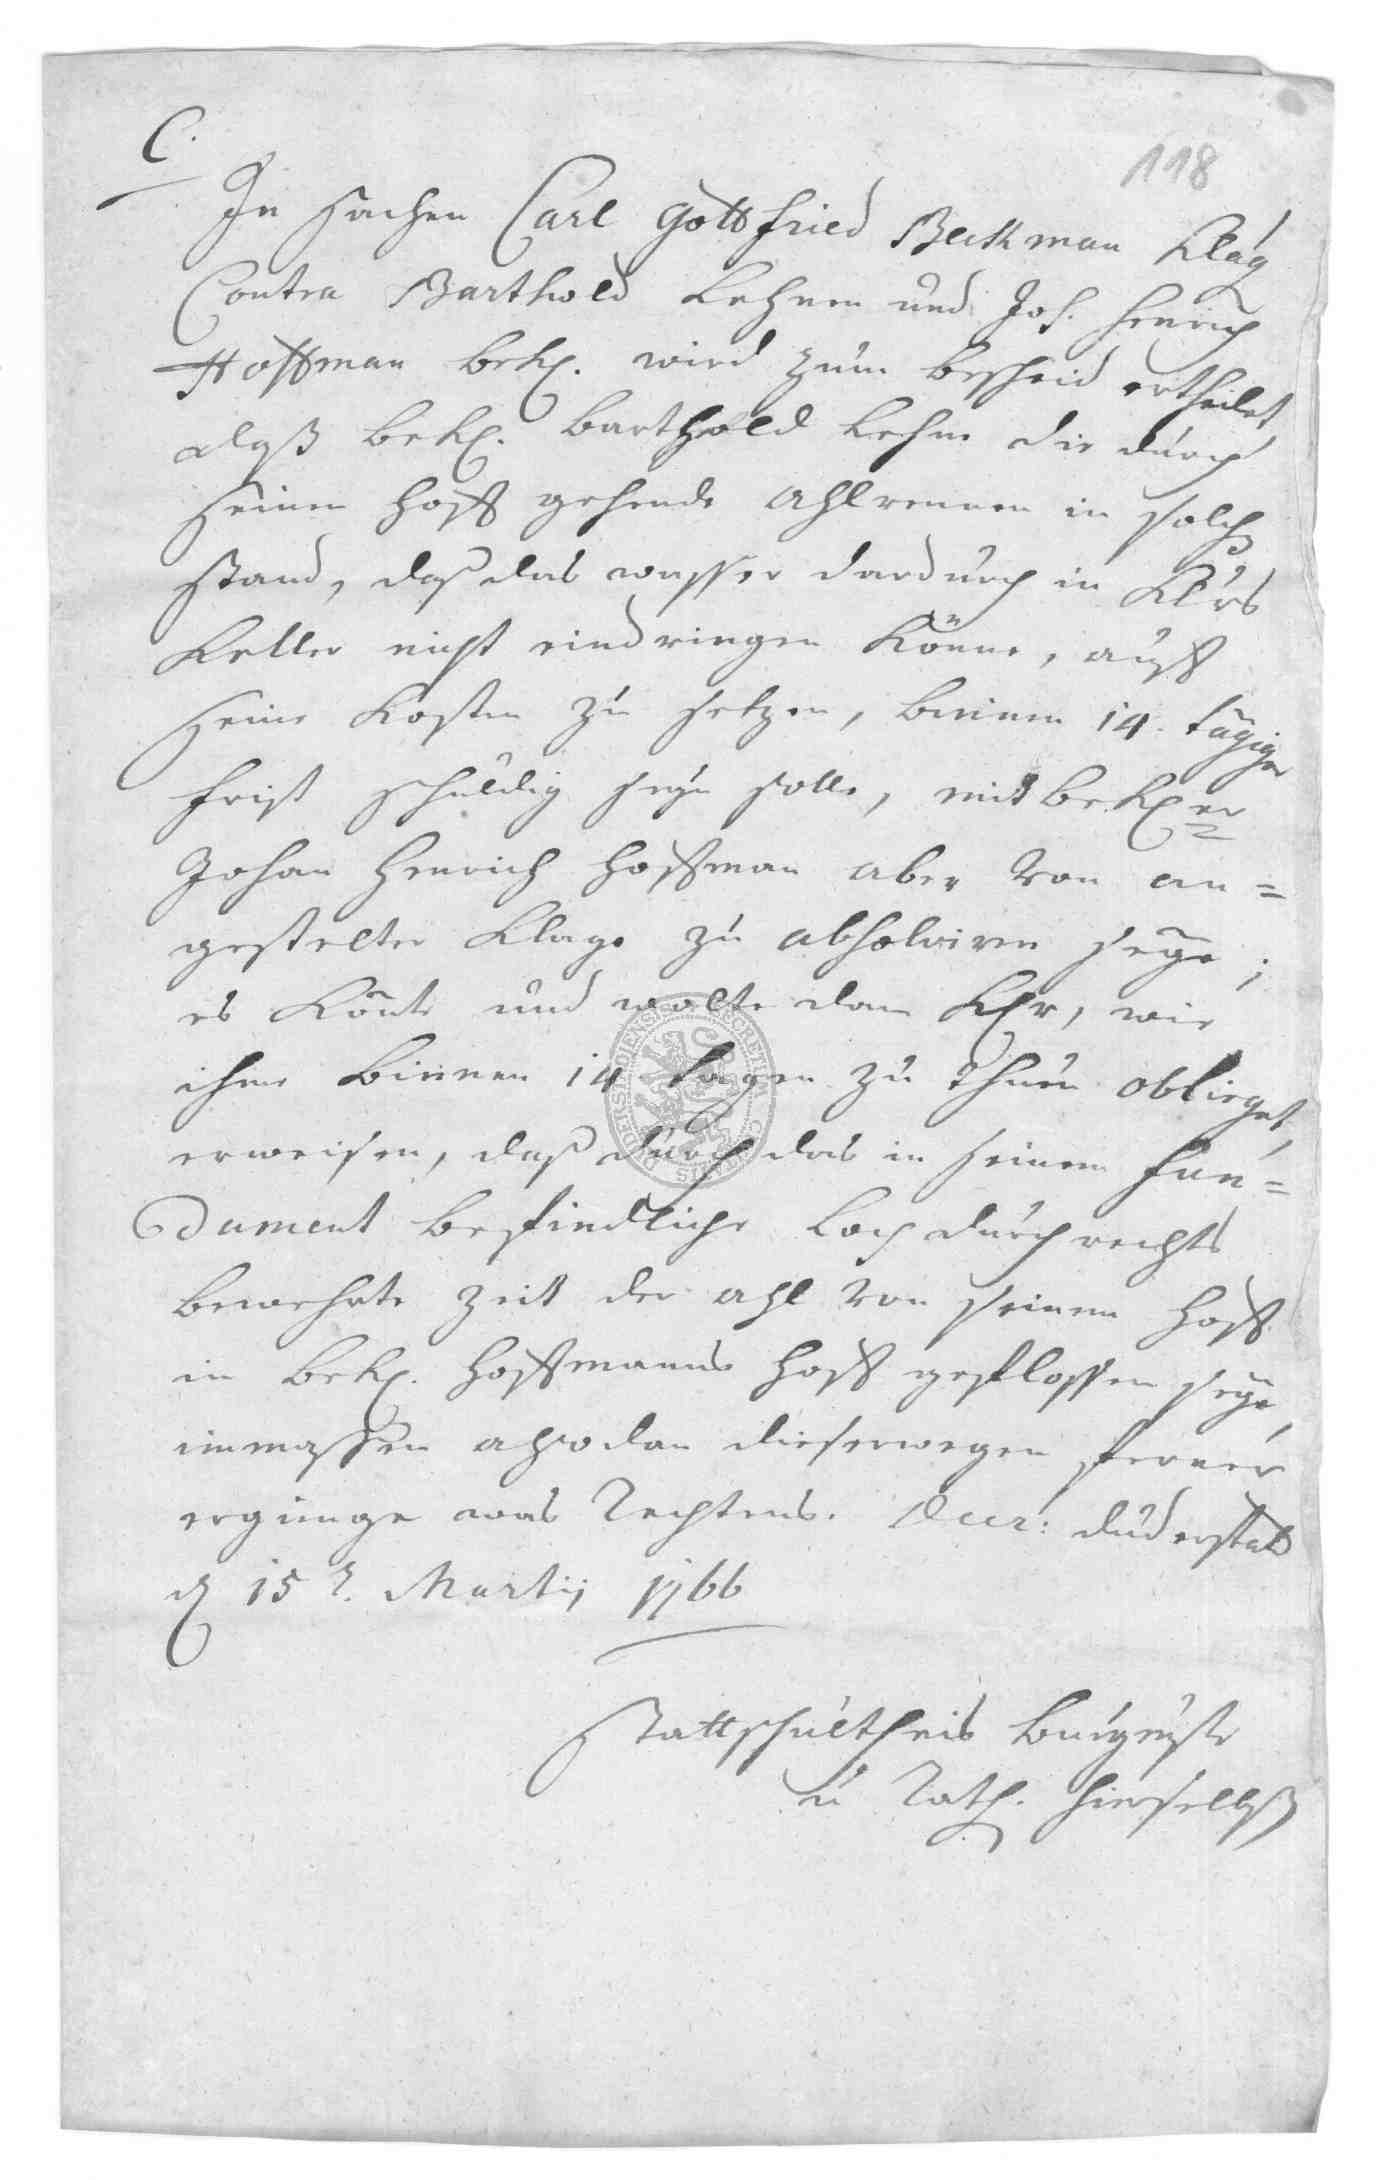 C.
118
In sachen Carl Gottfried Beckman Kläg
Contra Barthold Lehnen und Joh. Henrich
Hoffman bekl. wird zum bescheid ertheilet
daß bekl. Barthold Lehne die durch
seinen Hoff gehende ahlrennen in solch
stand, daß das wasser dardurch in Klrs
Keller nicht eindringen könne, auff
seine Kosten zu setzen, binnen 14. tägiger
frist schuldig seyn solle, mitbekler
Johan Henrich Hoffman aber von an=
gestelter Klage zu absolviren seye;
es könte und wolte dan Klr, wie
ihme binnen 14 tagen zu thun oblieget,
erweisen, daß durch das in seinem fun=
dament befindliche Loch durch rechts
bewehrte zeit der ahl von seinem Hoff
in bekl. Hoffmanns Hoff geflossen seye,
immassen alsodan dieserwegen ferner
erginge was Rechtens. Decr: Duderstad
d 15t. Martij 1766
Stattschultheis Burgmstr
u Rath. hierselbst